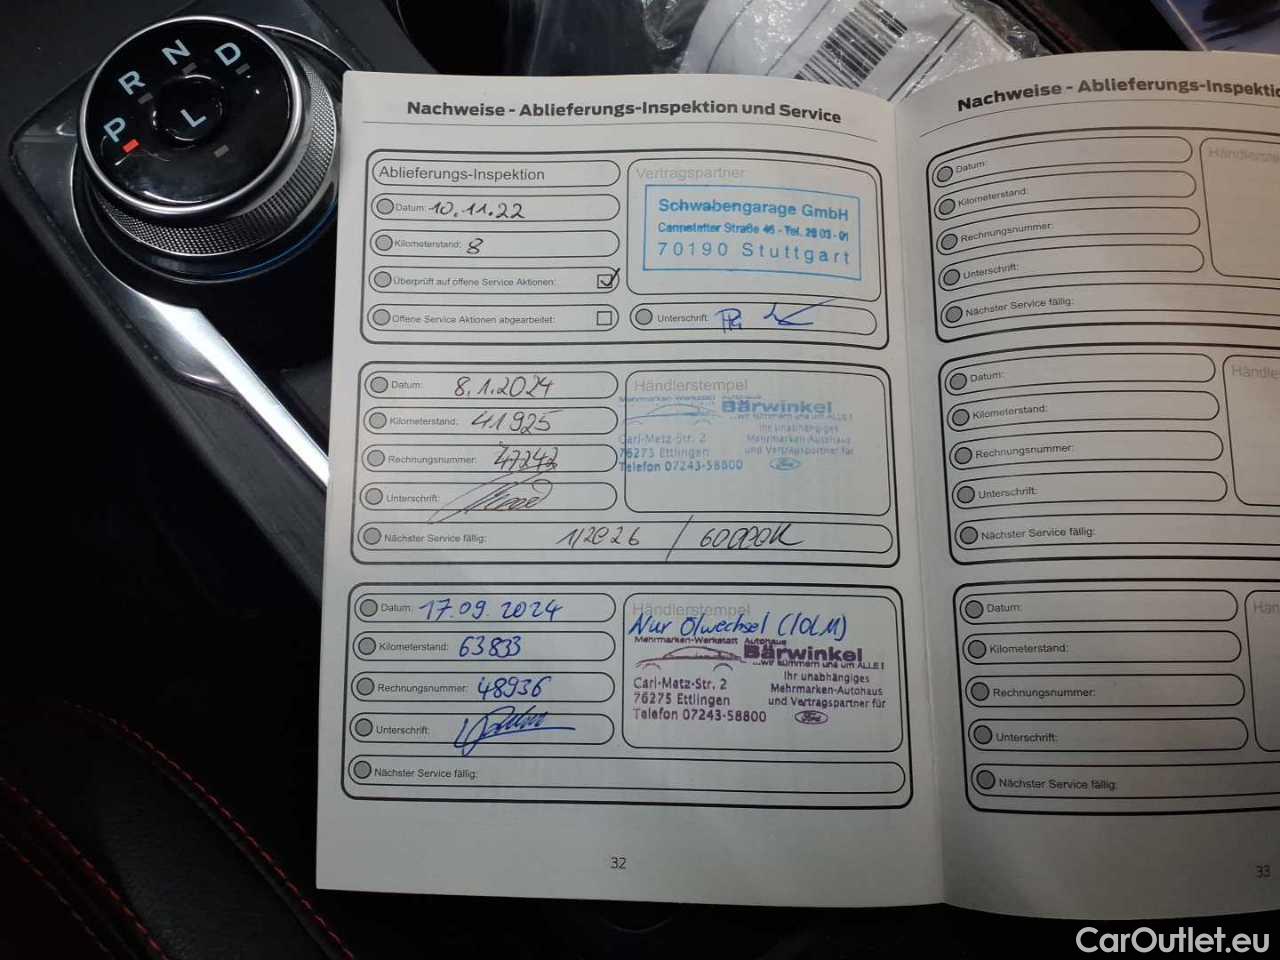 P R N D
L
Nachweise - Ablieferungs-Inspektion und Service
Ablieferungs-Inspektion
Datum: 10.11.22
Kilometerstand: 8
Überprüft auf offene Service Aktionen:
Offene Service Aktionen abgearbeitet:
Vertragspartner
Schwabengarage GmbH
Cannstatter Straße 46 - Tel. 28 03 - 01
70190 Stuttgart
Unterschrift:
Datum: 8.1.2024
Kilometerstand: 41925
Rechnungsnummer: 47242
Unterschrift:
Nächster Service fällig: 1/2026 / 60000K
Händlerstempel
Mehrmarken-Werkstatt Autohaus
Bärwinkel
...wir kümmern uns um ALLE!
Carl-Metz-Str. 2
76275 Ettlingen
Telefon 07243-58800
Ihr unabhängiges
Mehrmarken-Autohaus
und Vertragspartner für
Ford
Datum: 17.09.2024
Kilometerstand: 63833
Rechnungsnummer: 48936
Unterschrift:
Nächster Service fällig:
Händlerstempel
Nur Ölwechsel (IOLM)
Mehrmarken-Werkstatt Autohaus
Bärwinkel
...wir kümmern uns um ALLE!
Carl-Metz-Str. 2
76275 Ettlingen
Telefon 07243-58800
Ihr unabhängiges
Mehrmarken-Autohaus
und Vertragspartner für
Ford
32
Nachweise - Ablieferungs-Inspektio
Datum:
Kilometerstand:
Rechnungsnummer:
Unterschrift:
Nächster Service fällig:
Händlerste
Datum:
Kilometerstand:
Rechnungsnummer:
Unterschrift:
Nächster Service fällig:
Händle
Datum:
Kilometerstand:
Rechnungsnummer:
Unterschrift:
Nächster Service fällig:
Hän
33
CarOutlet.eu